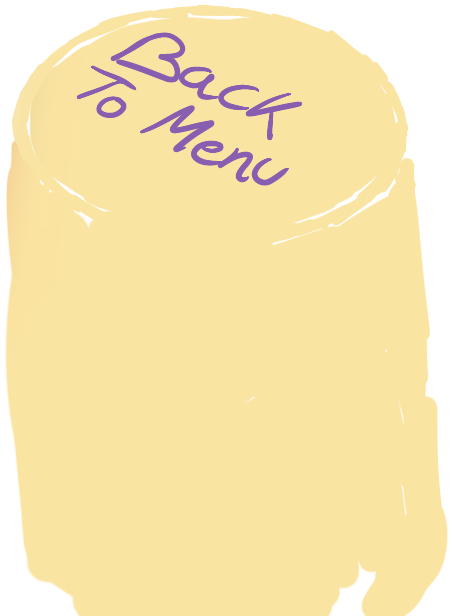 Back
To Menu